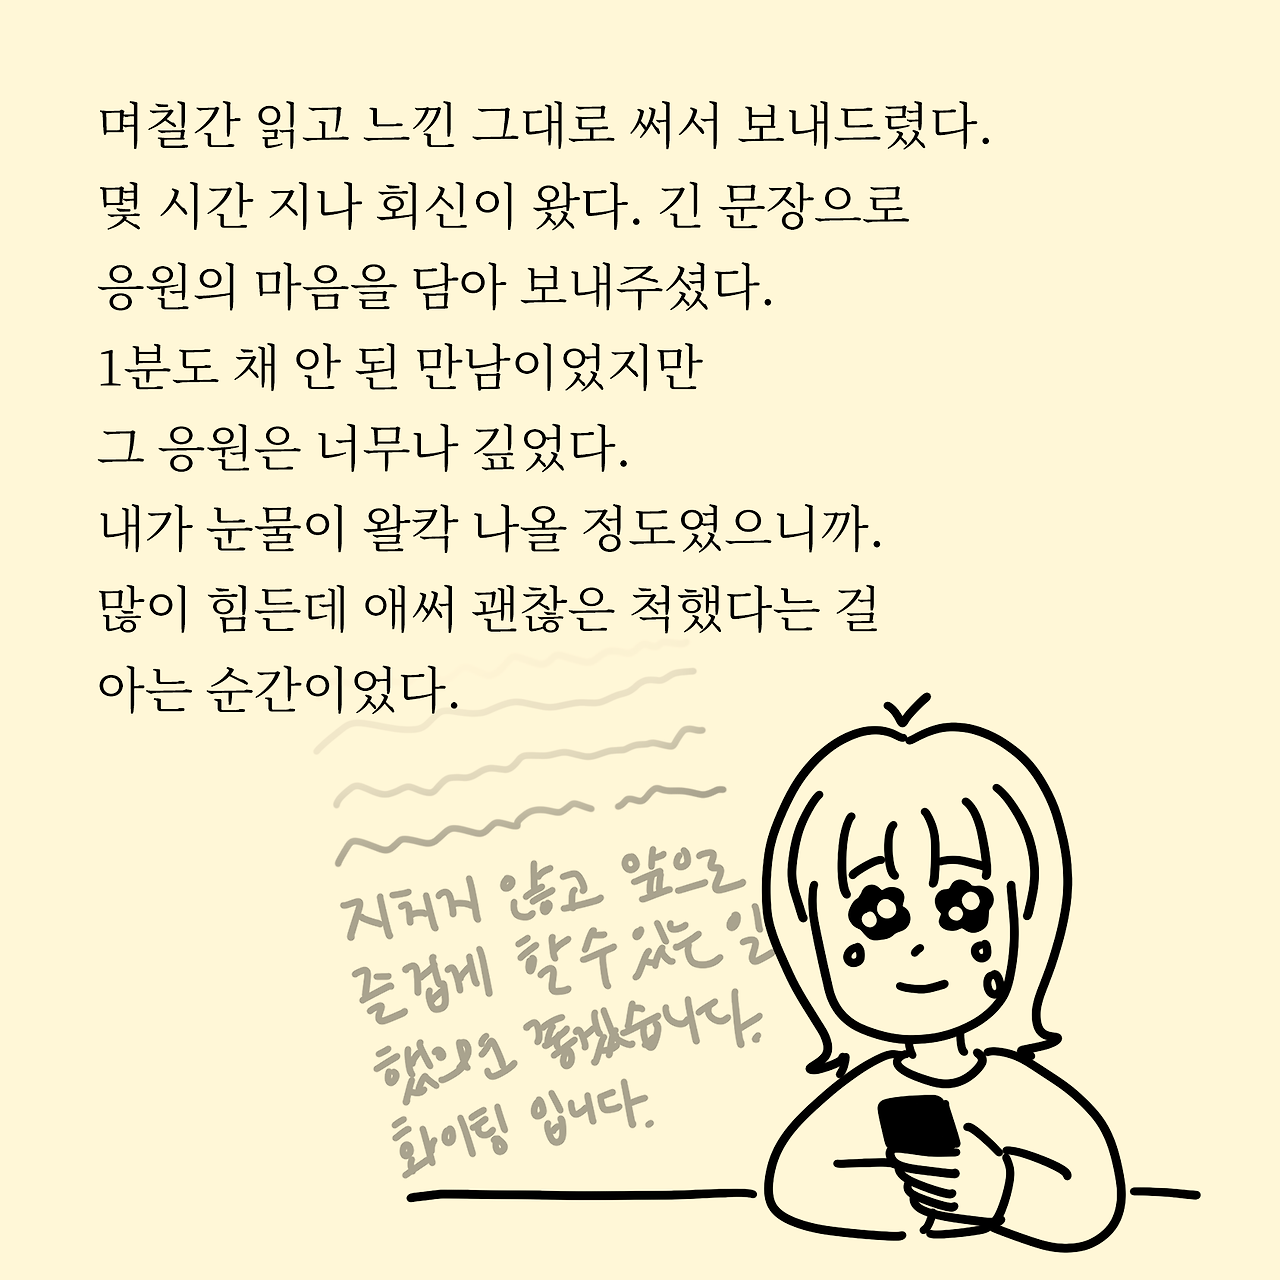 며칠간 읽고 느낀 그대로 써서 보내드렸다.
몇 시간 지나 회신이 왔다. 긴 문장으로
응원의 마음을 담아 보내주셨다.
1분도 채 안 된 만남이었지만
그 응원은 너무나 깊었다.
내가 눈물이 왈칵 나올 정도였으니까.
많이 힘든데 애써 괜찮은 척했다는 걸
아는 순간이었다.
지치지 않고 앞으로
즐겁게 할 수 있는 일
했으면 좋겠습니다.
화이팅 입니다.